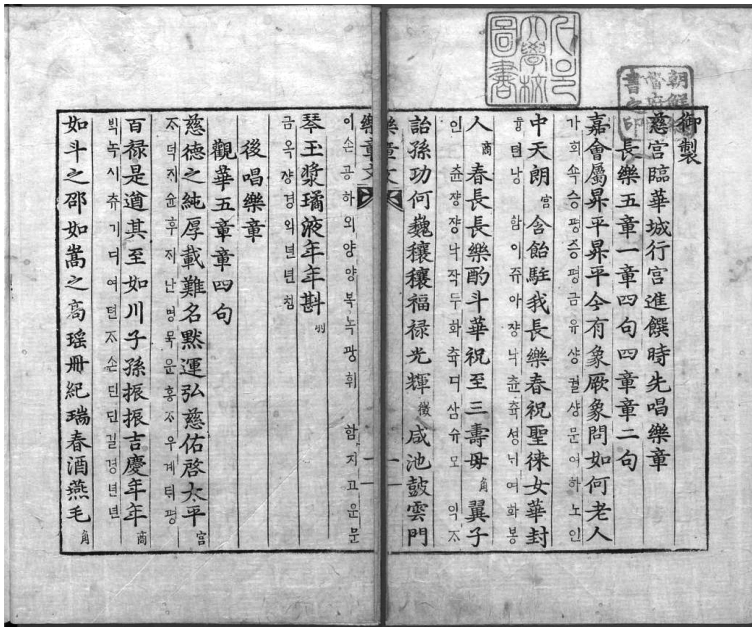 御製
慈宮臨華城行宮進饌時先唱樂章
長樂五章一章四句四章章二句
嘉會屬昇平昇平今有象厥象問如何老人
가회쇽승평승평금유샹궐샹문여하노인
中天朗 宮 含飴駐我長樂春祝聖徠女華封
듕텬낭 함이쥬아쟝낙츈츅셩ᄂᆡ여화봉
人 商 春長長樂酌斗華祝至三壽毋 角 翼子
인 츈쟝쟝낙쟉두화츅디삼슈모 익ᄌᆞ
詒孫功何巍穰穰福祿光輝 徵 咸池鼓雲門
樂章文 一
이손공하외양양복녹광휘 함지고운문
琴玉漿璚液年年斟 羽
금옥쟝경익년년침
後唱樂章
觀華五章章四句
慈德之純厚載難名黙運弘慈佑啓太平 宮
ᄌᆞ덕지슌후ᄌᆡ난명묵운홍ᄌᆞ우계ᄐᆡ평
百祿是遒其至如川子孫振振吉慶年年 商
ᄇᆡᆨ녹시쥬기디여텬ᄌᆞ손딘딘길경년년
如斗之邵如嵩之高瑤冊紀瑞春酒燕毛 角